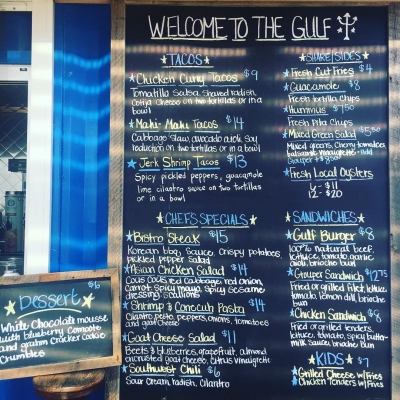 WELCOME TO THE GULF
TACOS
Chicken Curry Tacos $9
Tomatillo Salsa, shaved radish,
Cotija Cheese on two tortillas or in a
bowl
Mahi-Mahi Tacos $14
Cabbage Slaw, avocado aioli, soy
reduction on two tortillas or in a
bowl
Jerk Shrimp Tacos $13
Spicy pickled peppers, guacamole
lime cilantro sauce on two tortillas
or in a bowl
CHEF'S SPECIALS
Bistro Steak $15
Korean bbq sauce, crispy potatoes,
pickled pepper salad
Asian Chicken Salad $14
red cabbage, red onion,
carrot, spicy mayo, spicy sesame
dressing, scallions
Shrimp & Pasta $14
Cilantro pesto, peppers, onions, tomatoes
and goat cheese
Goat Cheese Salad $11
Beets & blueberries, grapefruit, almond
encrusted goat cheese, citrus vinaigrette
Southwest Chili $6
Sour cream, radish, cilantro
SHARE/SIDES
Fresh Cut Fries $4
Guacamole $8
Fresh tortilla chips
Hummus $7.50
Fresh Pita Chips
Mixed Green Salad $5.50
Mixed greens, Cherry tomatoes,
balsamic vinaigrette - add
grouper + $8.50
Fresh Local Oysters
6 - $11
12 - $20
SANDWICHES
Gulf Burger $8
100% natural beef,
lettuce, tomato, garlic
aioli, brioche bun
Grouper Sandwich $12.75
Fried or grilled filet, lettuce,
tomato, lemon dill, brioche
bun
Chicken Sandwich $8
Fried or grilled tenders,
lettuce, tomato, spicy butter-
milk sauce, brioche bun
KIDS $7
Grilled Cheese w/Fries
Chicken Tenders w/Fries
$6
Dessert
White Chocolate mousse
with blueberry Compote
and graham Cracker Cookie
Crumbles